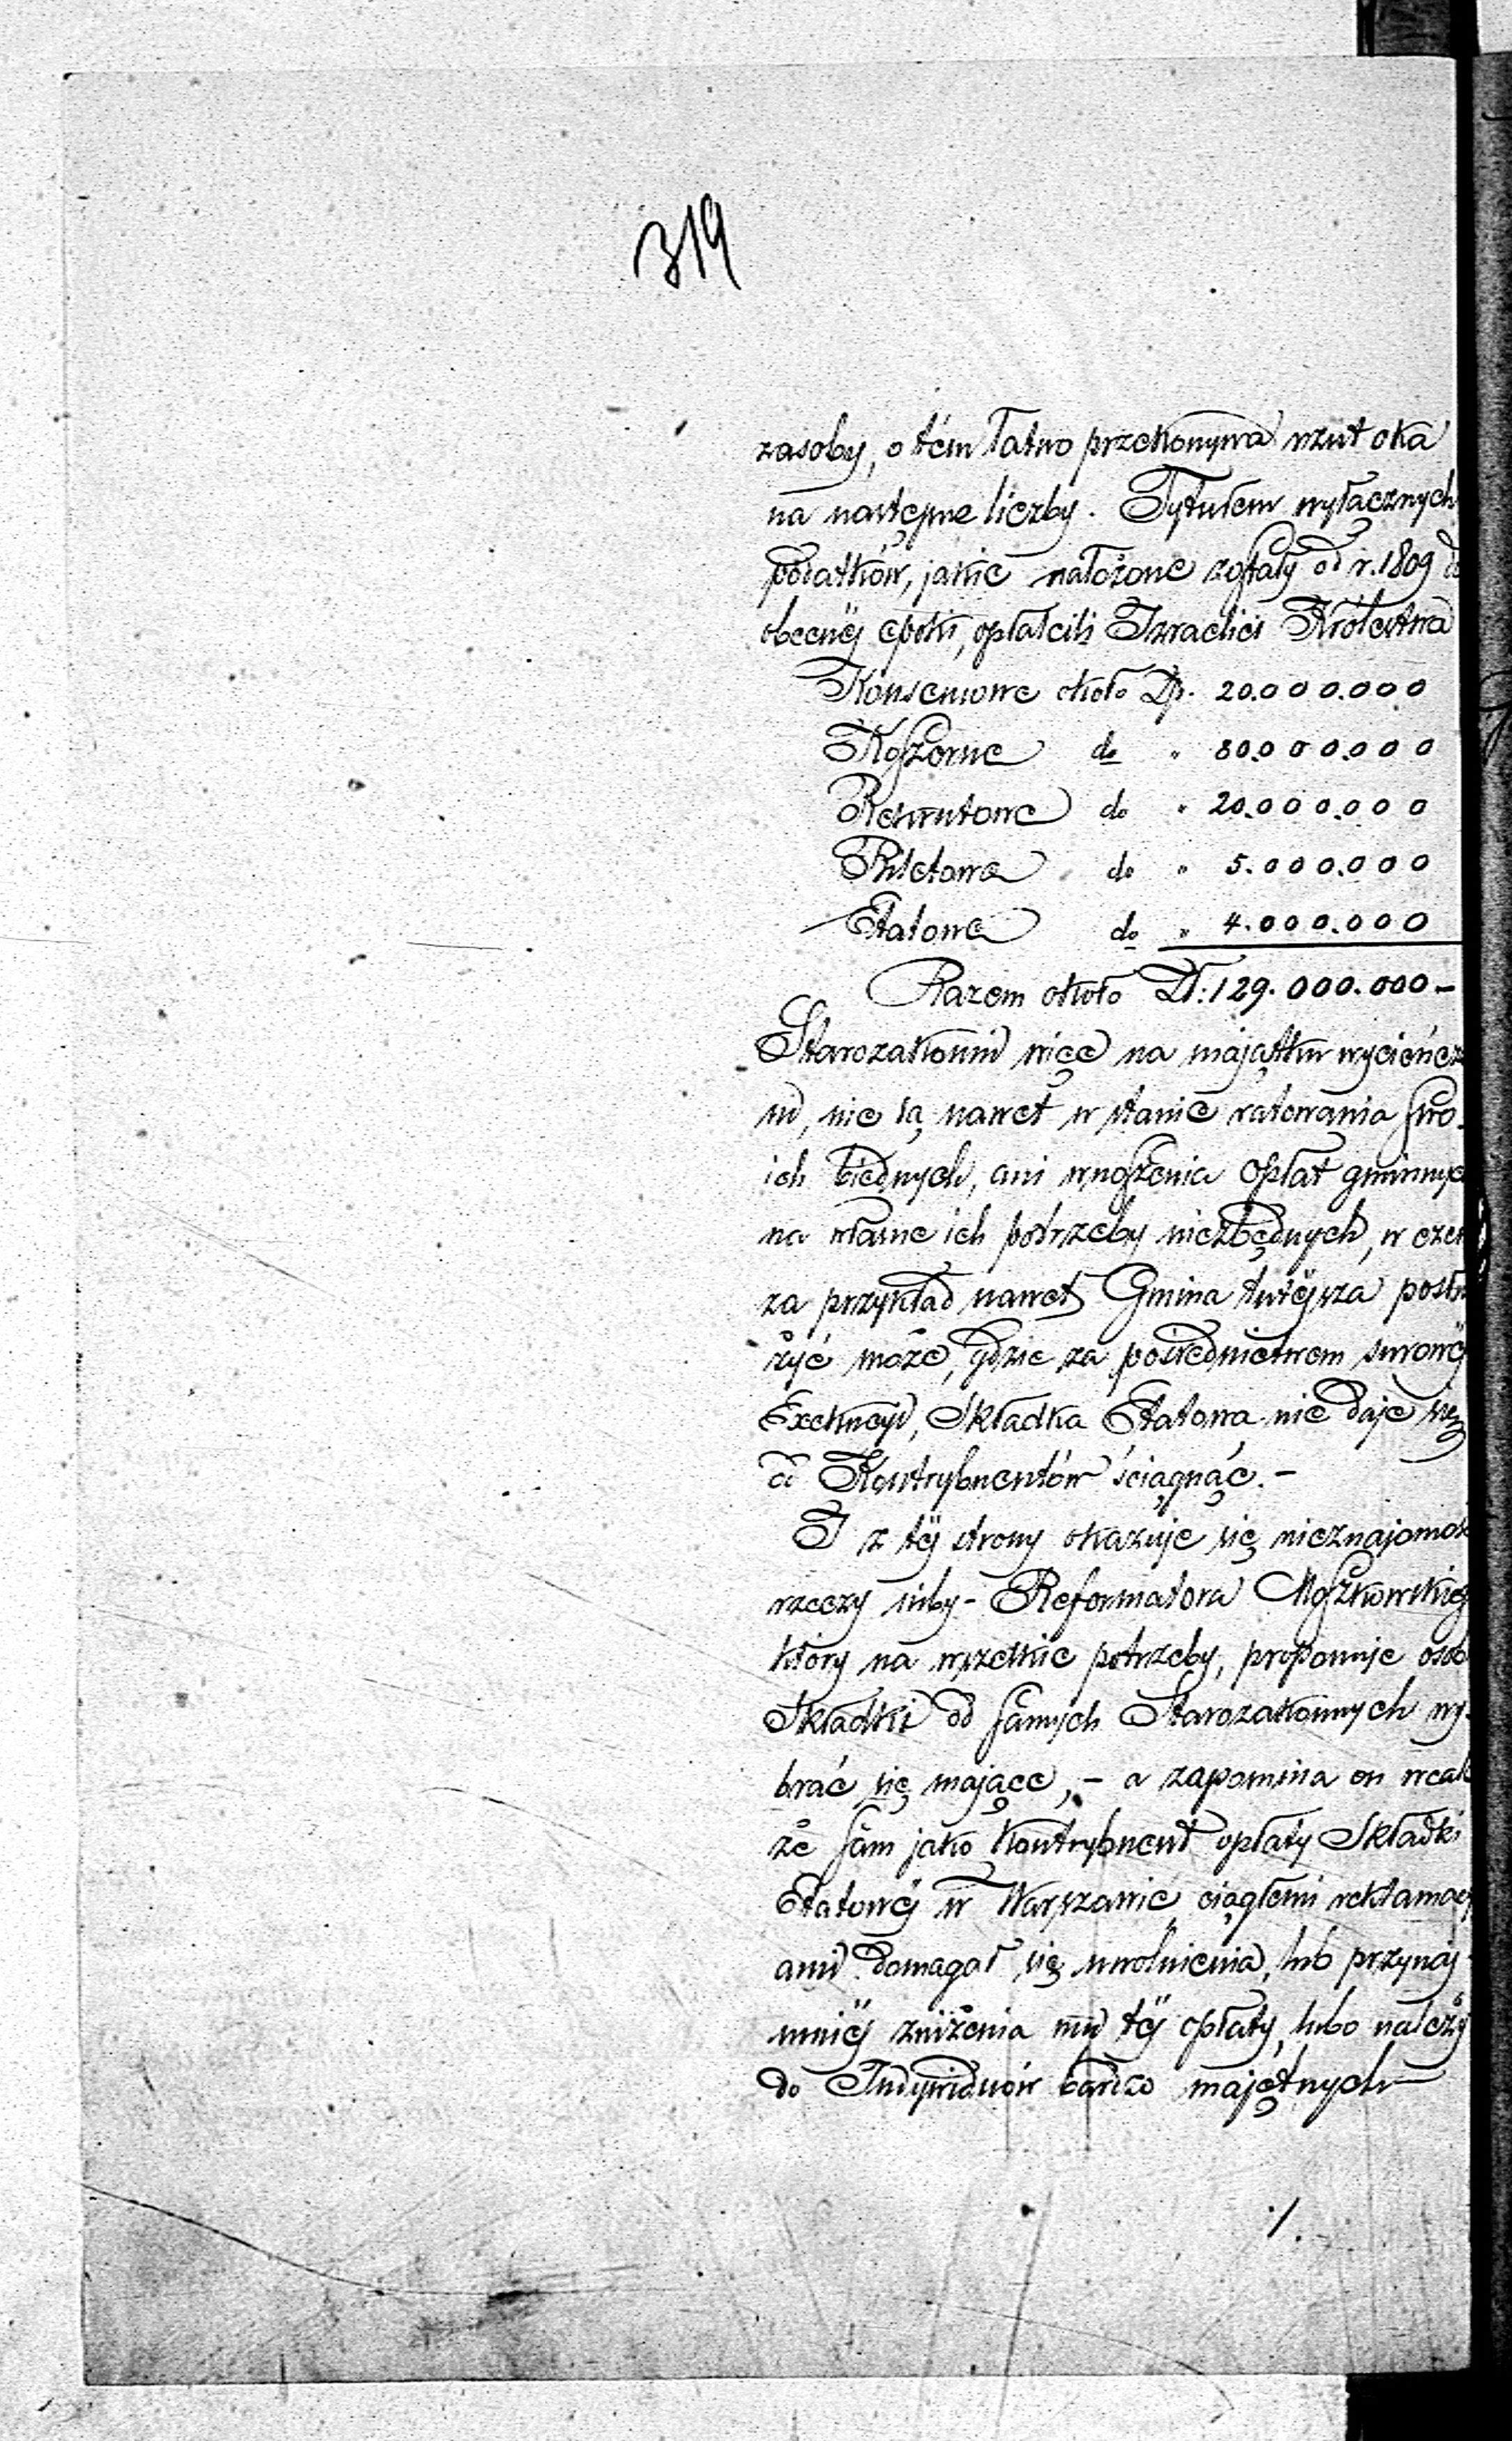 319
zasoby, o tém łatwo przekonywa rzut oka
na następne liczby. Tytułem wyłącznych
podatków, jakie nałożone zostały od r. 1809 do
obecnéj epoki, opłacili Izraelici Królestwa
Konsensowe około Zł. 20.000.000
Koszerne do " 80.000.000
Rekrutowe do " 20.000.000
Biletowe do " 5.000.000
Etatowe do " 4.000.000
Razem około Zł: 129.000.000 -
Starozakonni więc na majątku wycieńcze
ni, nie są nawet w stanie ratowania swo-
ich biednych, ani wnoszenia opłat gminnych
na własne ich potrzeby niezbędnych, w czem
za przykład nawet Gmina tutéjsza posłu
żyć może, gdzie za pośrednictwem surowéj
Exekucyi, Składka Etatowa nie daje się
od Kontrybuentów ściągnąć. -
I z téj strony okazuje się nieznajomość
rzeczy niby - Reformatora Moszkowskieg
który na wszelkie potrzeby, proponuje osob
Składki od samych Starozakonnych wy-
brać się mające, - a zapomina on wcale
że sam jako Kontrybuent opłaty Składki
Etatowéj w Warszawie, ciągłemi reklamacy
ami domagał się uwolnienia, lub przynaj-
mniéj zniżenia mu téj opłaty, lubo należy
do Indywiduów bardzo majętnych
./.